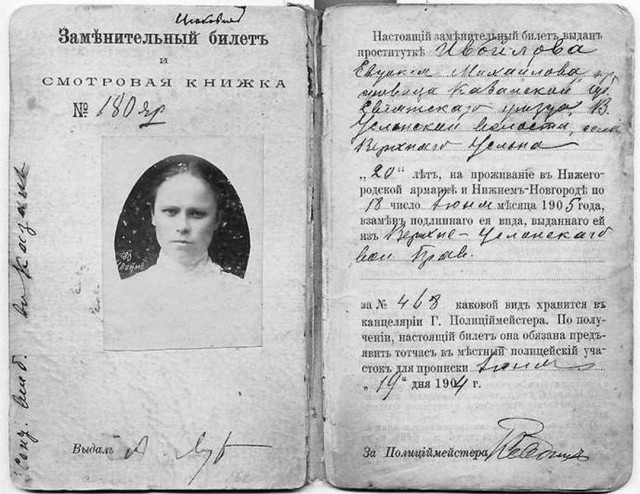 Замѣнительный билетъ
и
СМОТРОВАЯ КНИЖКА
№ 180 яр
Выдалъ А.
во Казань
Настоящій замѣнительный билетъ выданъ
проституткѣ
Михайлова
Казанской
уѣзда, В.
Услонской волости, села
Верхняго Услона
„20“ лѣтъ, на проживаніе въ Нижего-
родской ярмаркѣ и Нижнемъ-Новгородѣ по
18 число Іюня мѣсяца 1905 года,
взамѣнъ подлиннаго ея вида, выданнаго ей
изъ Верхне-Услонскаго
вол Прав.
за № 468 каковой видъ хранится въ
канцеляріи Г. Полиціймейстера. По полу-
ченіи, настоящій билетъ она обязана предъ-
явить тотчасъ въ мѣстный полицейскій уча-
стокъ для прописки Іюня
„19“ дня 1904 г.
За Полиціймейстера